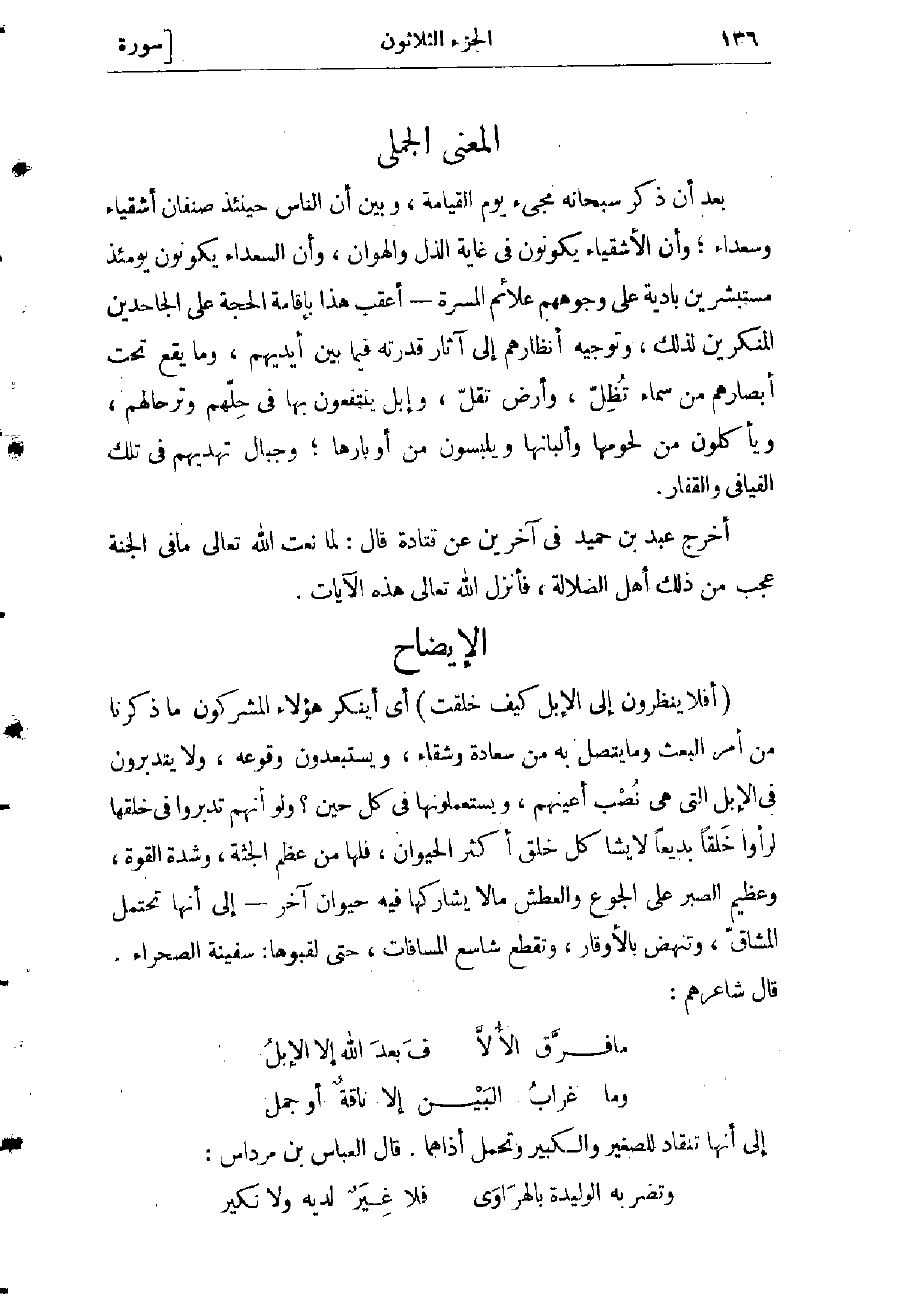 ١٣٦ الجزء الثلاثون [سورة
المعنى الجملى
بعد أن ذكر سبحانه مجىء يوم القيامة ، وبين أن الناس حينئذ صنفان أشقياء
وسعداء ؛ وأن الأشقياء يكونون فى غاية الذل والهوان ، وأن السعداء يكونون يومئذ
مستبشرين بادية على وجوههم علائم المسرة — أعقب هذا بإقامة الحجة على الجاحدين
المنكرين لذلك ، وتوجيه أنظارهم إلى آثار قدرته فيما بين أيديهم ، وما يقع تحت
أبصارهم من سماء تُظِلّ ، وأرض تقلّ ، وإبل ينتفعون بها فى حِلّهم وترحالهم ،
ويأكلون من لحومها وألبانها ويلبسون من أوبارها ؛ وجبال تهديهم فى تلك
الفيافى والقفار .
أخرج عبد بن حميد فى آخرين عن قتادة قال : لما نعت الله تعالى مافى الجنة
عجب من ذلك أهل الضلالة ، فأنزل الله تعالى هذه الآيات .
الإيضاح
( أفلا ينظرون إلى الإبل كيف خلقت ) أى أينكر هؤلاء المشركون ما ذكرنا
من أمر البعث ومايتصل به من سعادة وشقاء ، ويستبعدون وقوعه ، ولا يتدبرون
فى الإبل التى هى نُصْب أعينهم ، ويستعملونها فى كل حين ؟ ولو أنهم تدبروا فى خلقها
لرأوا خَلقاً بديعاً لايشاكل خلق أكثر الحيوان ، فلها من عظم الجثة ، وشدة القوة ،
وعظيم الصبر على الجوع والعطش مالا يشاركها فيه حيوان آخر — إلى أنها تحتمل
المشاقّ ، وتنهض بالأوقار ، وتقطع شاسع المسافات ، حتى لقبوها: سفينة الصحراء .
قال شاعرهم :
مافـرَّق الأُلاَّ فَ بعدَ الله إلا الإبلُ
وما غرابُ البَيْـن إلا ناقةٌ أو جمل
إلى أنها تنقاد للصغير والكبير وتحمل أذاهما . قال العباس بن مرداس :
وتضربه الوليدة بالهرَاوَى فلا غِيَرٌ لديه ولا نَكير